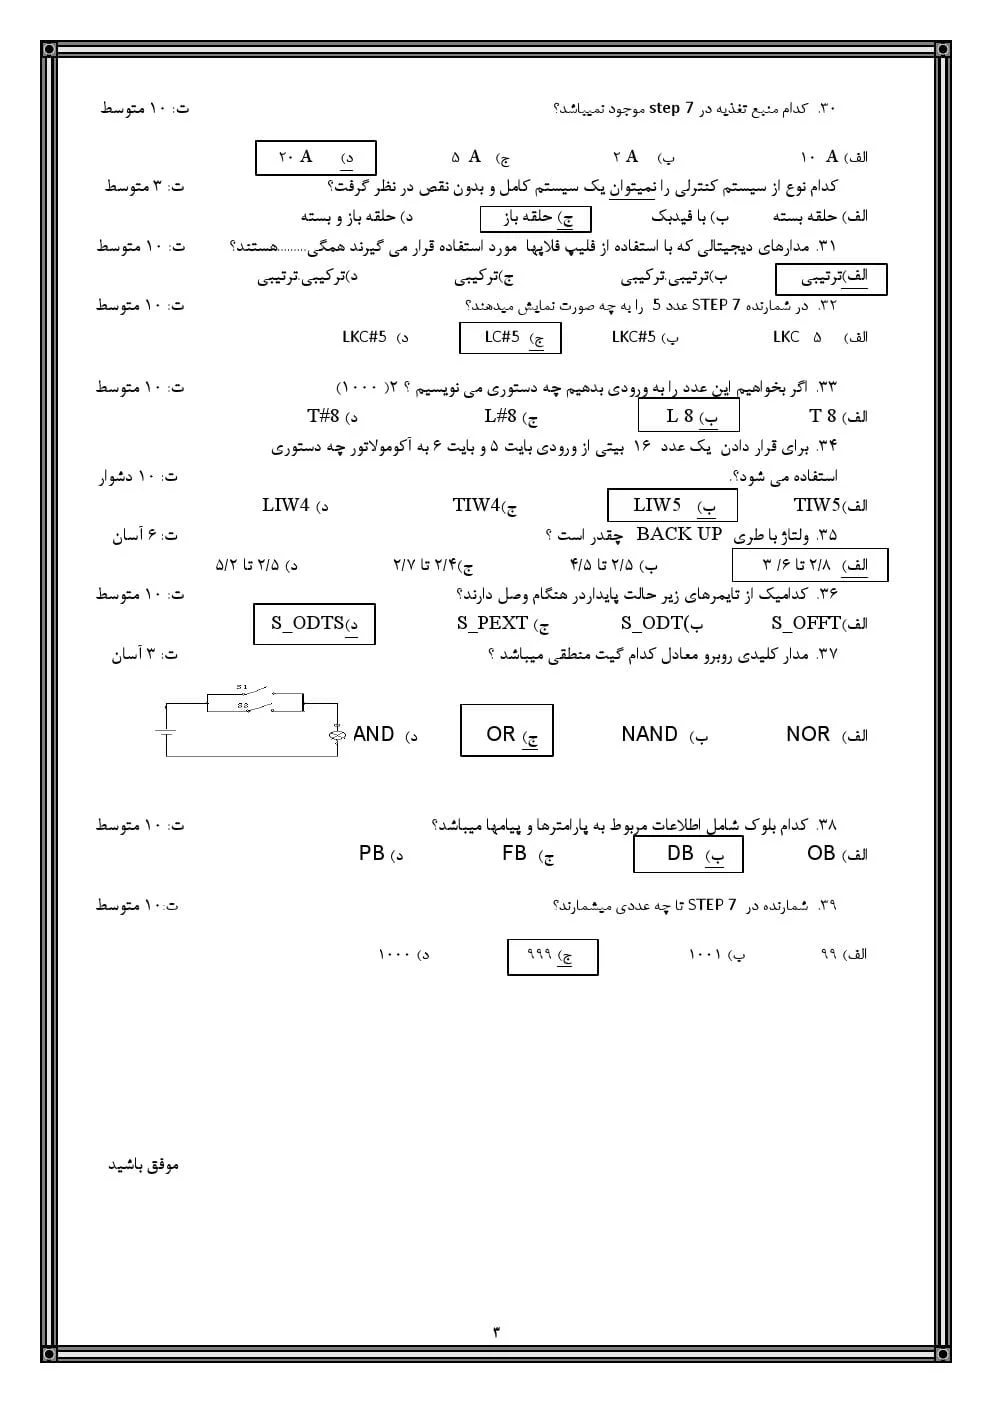 ۳۰. کدام منبع تغذیه در step 7 موجود نمیباشد؟ ت: ۱۰ متوسط
الف) ۱۰ A ب) ۲ A ج) ۵ A د) ۲۰ A
کدام نوع از سیستم کنترلی را نمیتوان یک سیستم کامل و بدون نقص در نظر گرفت؟ ت: ۳ متوسط
الف) حلقه بسته ب) با فیدبک ج) حلقه باز د) حلقه باز و بسته
۳۱. مدارهای دیجیتالی که با استفاده از فلیپ فلاپها مورد استفاده قرار می گیرند همگی.........هستند؟ ت: ۱۰ متوسط
الف)ترتیبی ب)ترتیبی.ترکیبی ج)ترکیبی د)ترکیبی.ترتیبی
۳۲. در شمارنده STEP 7 عدد 5 را یه چه صورت نمایش میدهند؟ ت: ۱۰ متوسط
الف) LKC ۵ ب) LKC#5 ج) LC#5 د) LKC#5
۳۳. اگر بخواهیم این عدد را به ورودی بدهیم چه دستوری می نویسیم ؟ ۲( ۱۰۰۰) ت: ۱۰ متوسط
الف) T 8 ب) L 8 ج) L#8 د) T#8
۳۴. برای قرار دادن یک عدد ۱۶ بیتی از ورودی بایت ۵ و بایت ۶ به آکومولاتور چه دستوری
استفاده می شود؟. ت: ۱۰ دشوار
الف)TIW5 ب) LIW5 ج)TIW4 د) LIW4
۳۵. ولتاژ با طری BACK UP چقدر است ؟ ت: ۶ آسان
الف) ۲/۸ تا ۶/ ۳ ب) ۲/۵ تا ۴/۵ ج)۲/۴ تا ۲/۷ د) ۲/۵ تا ۵/۲
۳۶. کدامیک از تایمرهای زیر حالت پایداردر هنگام وصل دارند؟ ت: ۱۰ متوسط
الف)S_OFFT ب)S_ODT ج) S_PEXT د)S_ODTS
۳۷. مدار کلیدی روبرو معادل کدام گیت منطقی میباشد ؟ ت: ۳ آسان
S1
S2
الف) NOR ب) NAND ج) OR د) AND
۳۸. کدام بلوک شامل اطلاعات مربوط به پارامترها و پیامها میباشد؟ ت: ۱۰ متوسط
الف) OB ب) DB ج) FB د) PB
۳۹. شمارنده در STEP 7 تا چه عددی میشمارند؟ ت:۱۰ متوسط
الف) ۹۹ ب) ۱۰۰۱ ج) ۹۹۹ د) ۱۰۰۰
موفق باشید
۳